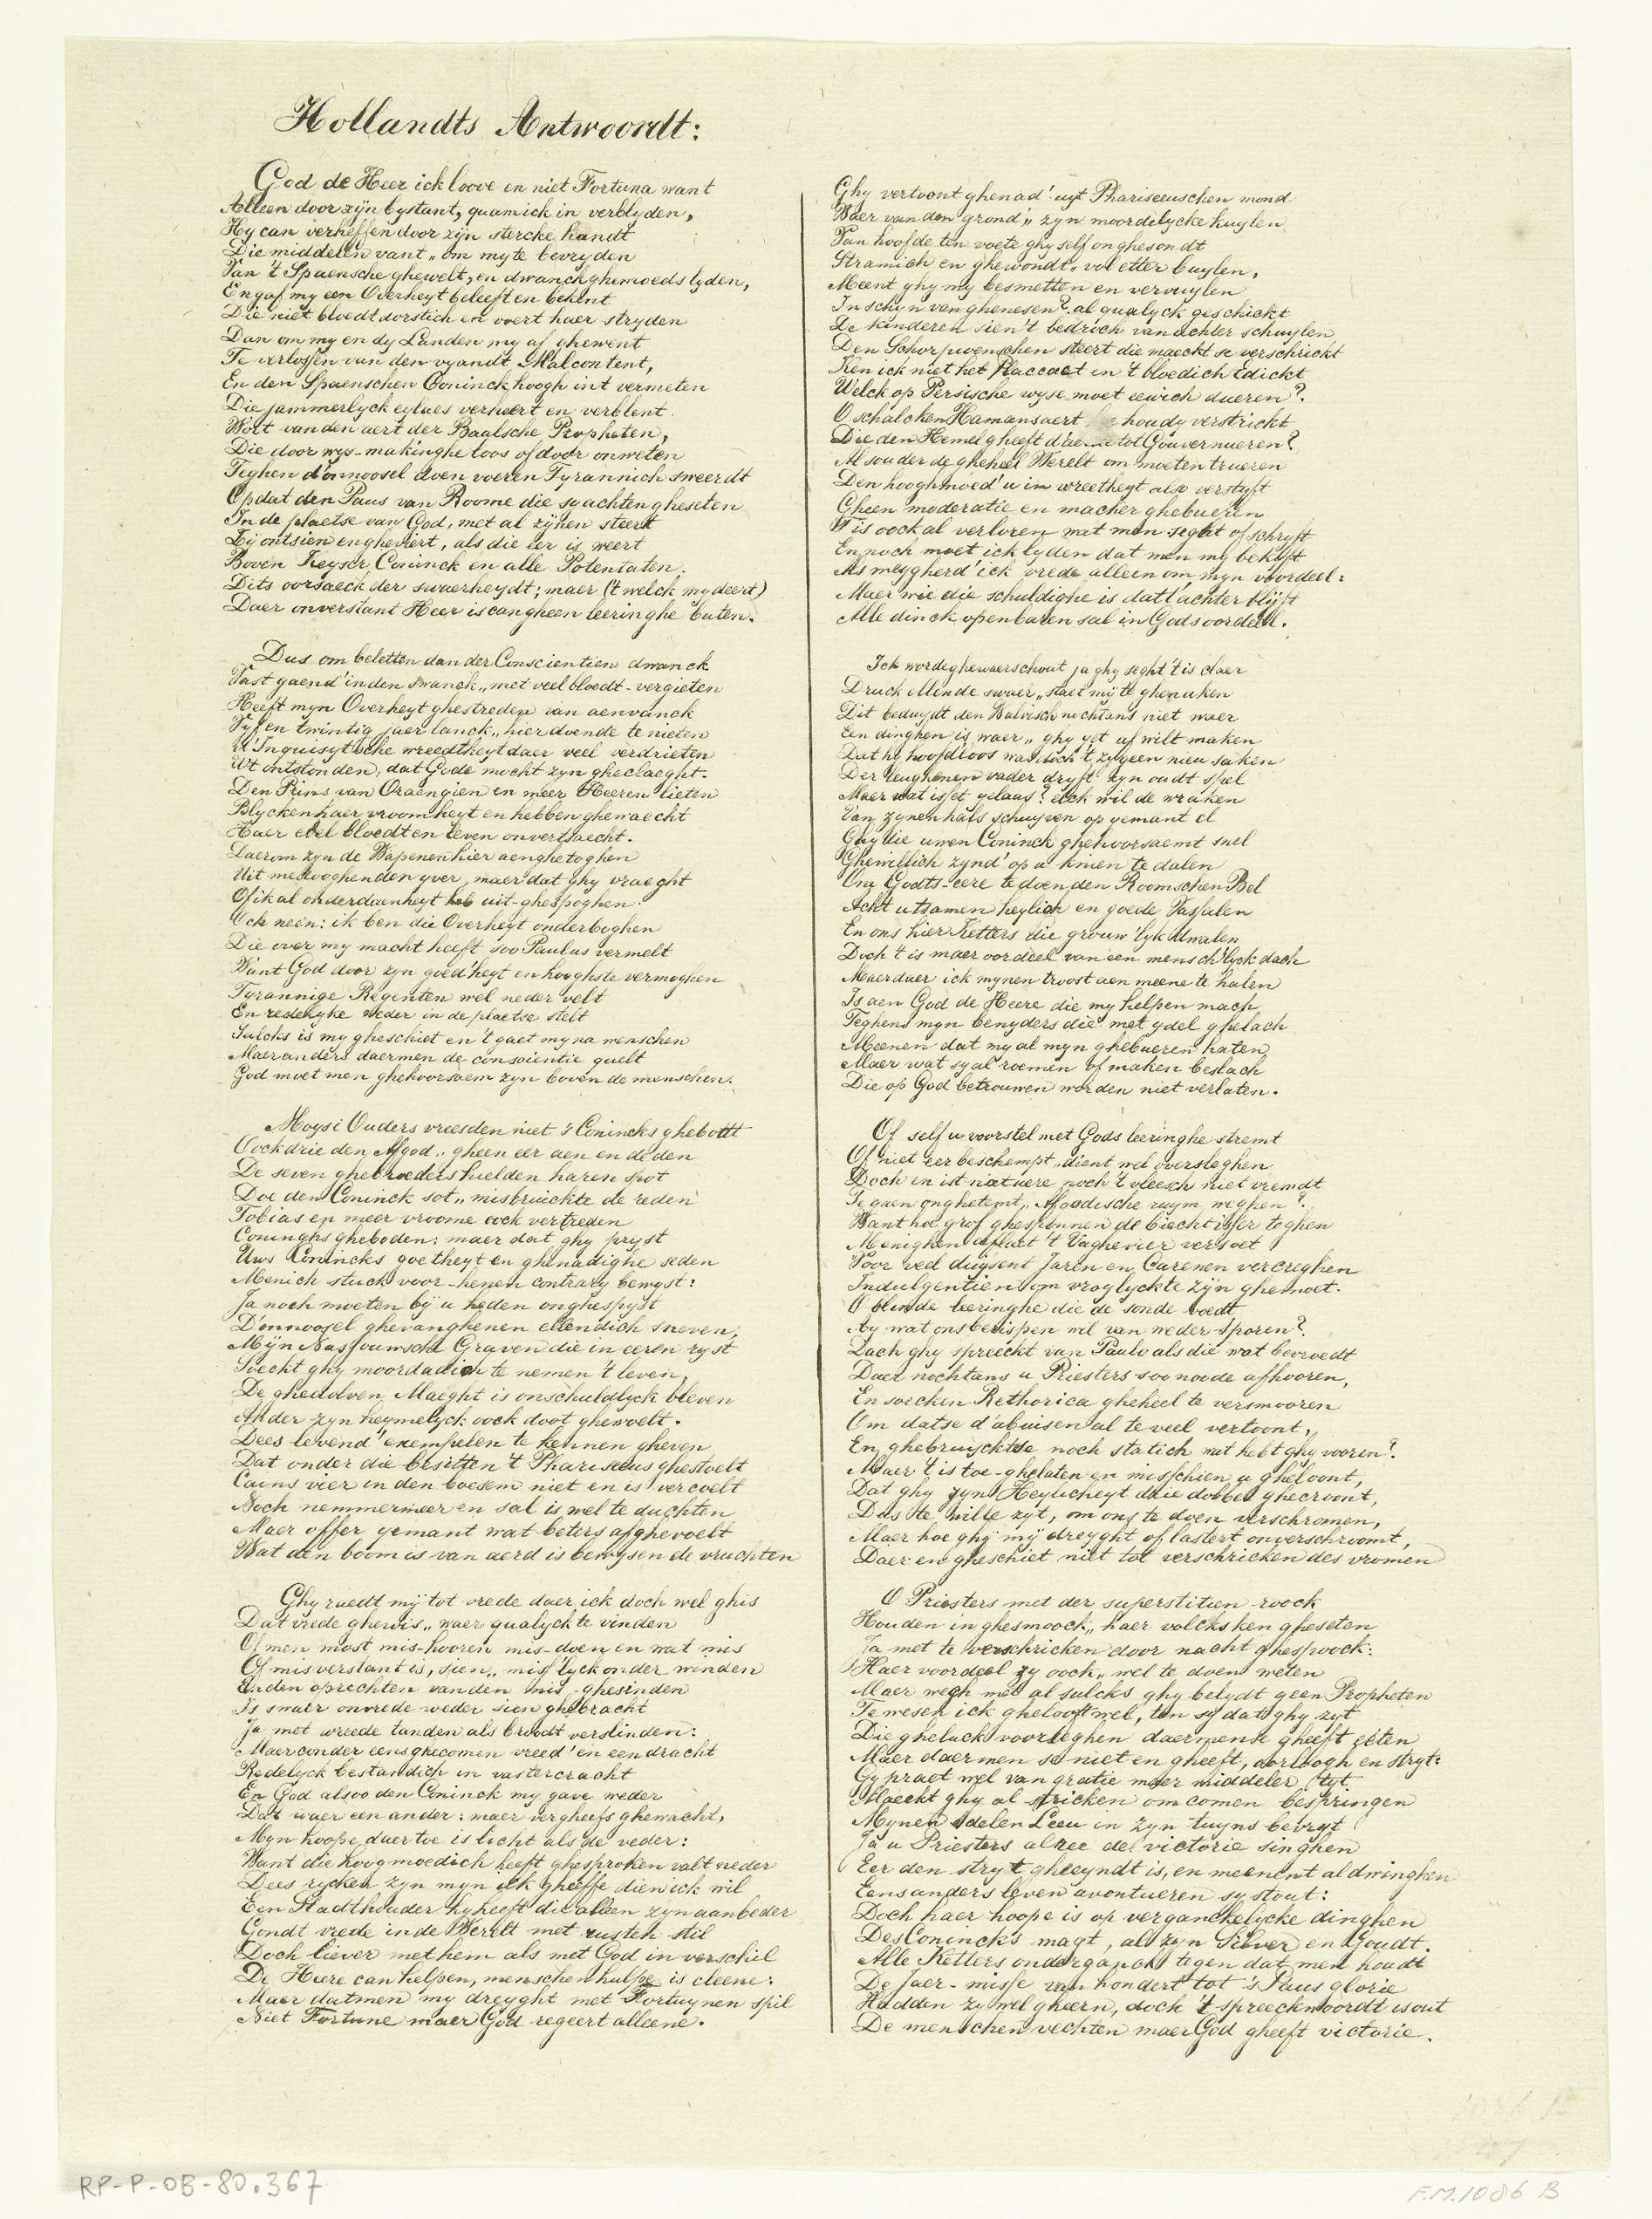 Hollandts Antwoordt:
God de Heer ick loove en niet Fortuna want
Alleen door zijn bystant, quam ick in verblyden,
Hy can verheffen door zijn stercke handt
Die middelen vant „ om my te bevryden
Van 't Spaensche ghewelt, en dwanck ghemoeds lyden,
En gaf my een Overheyt beleeft en bekent
Die niet bloedtdorstich en voert haer stryden
Dan om my en dy Landen my af ghewent
Te verlossen van den vyandt Malcontent,
En den Spaenschen Coninck hoogh int vermeten
Die jammerlyck eylaes verheert en verblent
Wort van den aert der Baalsche Propheten,
Die door wys-makinghe loos of door onweten
Teghen d'onnoosel doen voeren Tyrannich sweerdt
Opdat den Paus van Roome die sy achten gheseten
In de plaetse van God, met al zijnen steert
Zij ontsien en gheviert, als die eer is weert
Boven Keyser Coninck en alle Potentaten.
Dits oorsaeck der swaerheydt; maer ('t welck my deert)
Daer onverstant Heer is can gheen leeringhe baten.
Dus om beletten dan der Conscientien dwanck
Vast gaend' in den swanck „ met veel bloedt-vergieten
Heeft myn Overheyt ghestreden van aenvanck
Vyf en twintig jaer lanck „ hier doende te nieten
D'Inquisytsche wreedtheyt daer veel verdrieten
Ut ontstonden, dat Gode mocht zyn gheclaeght.
Den Prins van Oraengien en meer Heeren lieten
Blycken haer vroomheyt en hebben ghewaecht
Haer edel bloedt en leven onvertsaecht.
Daerom zyn de Wapenen hier aenghetoghen
Uit medooghenden yver, maer dat ghy vraeght
Of ik al onderdaenheyt heb uit-ghespoghen.
Och neen: ik ben die Overheyt onderboghen
Die over my macht heeft soo Paulus vermelt
Want God door zyn goed'heyt en hooghste vermoghen
Tyrannige Regenten wel neder velt
En redelyke weder in de plaetse stelt
Sulcks is my gheschiet en 't gaet my na wenschen
Maer anders daermen de conscientie quelt
God moet men ghehoorsaem zyn boven de menschen.
Moysi Ouders vreesden niet 's Conincks ghebodt
Oock drie den Afgod „ gheen eer aen en deden
De seven ghebroeders hielden haren spot
Doe den Coninck sot „ misbruickte de reden
Tobias en meer vroome oock vertreden
Coninghs gheboden: maer dat ghy pryst
Uws Conincks goetheyt en ghenadighe seden
Menich stuck voor-henen contrary bewyst:
Ja noch moeten bij u heden onghespyst
D'onnoosel ghevanghenen ellendich sneven,
Mijn Nassouwsche Graven die in eeren ryst
Soecht ghy moordadich te nemen 't leven,
De ghedolven Maeght is onschuldlyck bleven
Ander zyn heymelyck oock doot ghevoelt.
Dees levend' exempelen te kennen gheven
Dat onder die besitten 't Phariseus ghestoelt
Cains vier in den boesem niet en is vercoelt
Noch nemmermeer en sal is wel te duchten
Maer offer yemant wat beters af ghevoelt
Wat den boom is van aerd is bewysen de vruchten
Ghy raedt mij tot vrede daer ick doch wel ghis
Dat vrede ghewis „ waer qualyck te vinden
Of men most mis-hooren mis-doen en wat mis
Of misverstant is, sien „ mis'lyck onder winden
Enden oprechten van den mis-ghesinden
Is swaer onvrede weder sien ghebracht
Ja met wreede tanden als broodt verslinden:
Maer conder eens ghecomen vreed' en eendracht
Redelyck bestandich in vaster cracht
En God alsoo den Coninck my gave weder
Dat waer een ander: maer vergheefs ghewacht,
Myn hoope daer toe is licht als de veder:
Want die hoogmoedich heeft ghesproken valt neder
Dees rycken zyn myn ick gheeffe dien ick wil
Een Stadthouder hy heeft die alleen zyn aanbeder
Gondt vrede in de Werelt met rusten stil
Doch liever met hem als met God in verschil
De Heere can helpen, menschen hulpe is cleene:
Maer datmen my dreyght met Fortuynen spil
Niet Fortune maer God regeert alleene.
Ghy vertoont ghenad' uyt Phariseeuschen mond
Waer van den grond „ zyn moordelycke kuylen
Van hoofde ten voete ghy self onghesondt
Stramich en ghewondt „ vol etter buylen,
Meent ghy my besmetten en vervuylen
In schyn van ghenesen? al qualyck geschickt
De kinderen sien 't bedrich van achter schuylen
Den Schorpioenschen steert die maeckt se verschrickt
Ken ick niet het Placcaet en 't bloedich Edickt
Welck op Persische wyse moet eewich dueren?
O schalcken Hamans aert houdy verstrickt
Die den Hemel gheeft d'aerde tot Gouvernueren?
Al sou der de gheheel Werelt om moeten trueren
Den hooghmoed' u in wreetheyt also verstyft
Gheen moderatie en macher ghebueren
't Is oock al verloren wat men seght of schryft
En noch moet ick lyden dat men my bekyft
Als weygherd' ick vrede alleen om myn voordeel:
Maer wie die schuldighe is dat l'achter blijft
Alle dinck openbaren sal in Gods oordeel.
Ick worde ghewaerschout ja ghy seght 't is claer
Druck ellende swaer „ staet mij te ghenaken
Dit beduydt den Walvisch nochtans niet waer
Een dinghen is waer „ ghy yet af wilt maken
Dat hy hoofdloos was doch 't zy geen nieu saken
Der leughenen vader dryft zyn oudt spel
Maer wat isset gelaas? elck wil de wraken
Van zynen hals schuyven op yemant el
Ghy die uwen Coninck ghehoorsaemt snel
Ghewillich zynd' op u knien te dalen
Om Godts-eere te doen den Roomschen Bel
Acht u tsamen heylich en goede Vassalen
En ons hier Ketters die grouw'lyk dwalen
Doch 't is maer oordeel van een mensch'lyck dach
Maer daer ick mynen troost aen meene te halen
Is aen God de Heere die my helpen mach
Teghens myn benyders die met ydel ghelach
Meenen dat my al myn ghebueren haten
Maer wat sy al roemen of maken beslach
Die op God betrouwen worden niet verlaten.
Of self u voorstel met Gods leeringhe stremt
Of niet eer beschempt „ dient wel oversleghen
Doch en ist natuere noch 't vleesch niet vremdt
Te gaen onghetemt „ Afgodische ruym weghen?
Want hoe grof ghesponnen de biecht isser teghen
Menighen aflaet 't Vaghevier versoet
Voor veel duysent Jaren en Carenen vercreghen
Indulgentien om vroylyck te zijn ghemoet.
O blinde leeringhe die de sonde voedt
Ay wat ons berispen wil van weder-sporen?
Dach ghy spreeckt van Paulo als die wat bevroedt
Daer nochtans u Priesters soo noode af hooren,
En soecken Rethorica gheheel te versmooren
Om datse d'abuisen al te veel vertoont,
En ghebruyckt se noch statich wat hebt ghy vooren?
Maer 't is toe-ghelaten en misschien u gheloont,
Dat ghy zyn Heylicheyt drie dobbel ghecroont,
Dus te wille zyt, om ons te doen verschromen,
Maer hoe ghy mij dreyght of lastert onverschroomt,
Daer en gheschiet niet tot verschricken des vromen
O Priesters met der superstitien roock
Houden in ghesmoock „ haer volckskens gheseten
Ja met te verschricken door nacht ghespoock:
Haer voordeel zy oock „ wel te doen weten
Maer wegh met al sulcks ghy belydt geen Propheten
Te wesen ick ghelooft wel, ten sij dat ghy zyt
Die gheluck voorseghen daermense gheeft eeten
Maer daermen se niet en gheeft, oorloogh en stryt:
Gy praet wel van gratie maer middeler tyt
Maeckt ghy al stricken om comen bespringen
Mynen Edelen Leeu in zyn tuyns bevryt
Ja u Priesters al ree de victorie singhen
Eer den stryt gheeyndt is, en meenent al dwinghen
Eens anders leven avontueren sy stout:
Doch haer hoope is op verganckelycke dinghen
Des Conincks magt, al zyn Silver en Goudt.
Alle Ketters onderganck tegen dat men houdt
De Jaer-misse van hondert tot 's Paus glorie
Hadden zy wel gheern, doch 't spreeckwoordt is out
De menschen vechten maer God gheeft victorie.
RP-P-OB-80.367
F.M.1086 B